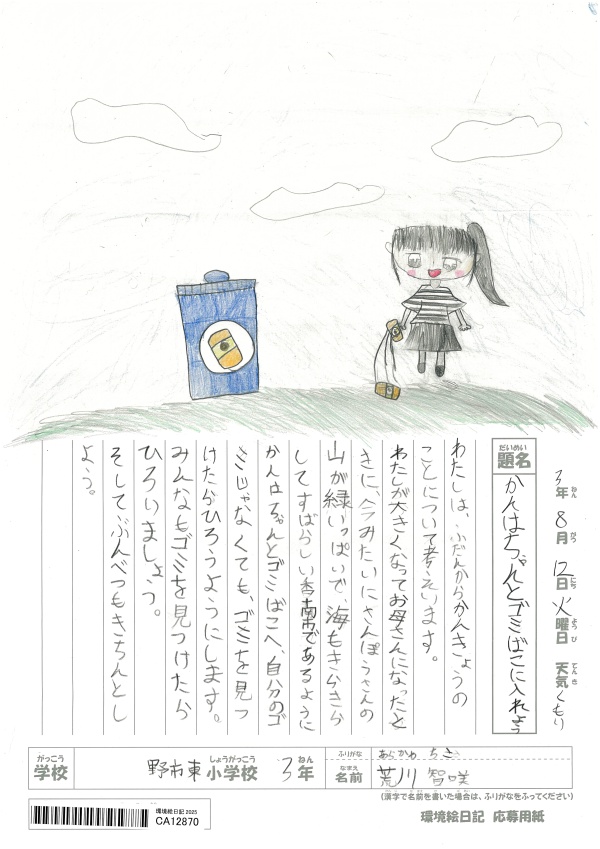 3年8月12日火曜日 天気くもり
題名 かんはちゃんとゴミばこに入れよう
わたしは、ふだんからかんきょうの
ことについて考えています。
わたしが大きくなってお母さんになったと
きに、今みたいにさんぽうさんの
山が緑いっぱいで、海もきらきら
してすばらしい香南市であるように
かんはちゃんとゴミばこへ、自分のゴ
ミじゃなくても、ゴミを見つ
けたらひろうようにします。
みんなもゴミを見つけたら
ひろいましょう。
そしてぶんべつもきちんとし
よう。
学校 野市東小学校 3年
ふりがな あらかわ ちさ
名前 荒川 智咲
(漢字で名前を書いた場合は、ふりがなをふってください)
環境絵日記2025
CA12870
環境絵日記 応募用紙